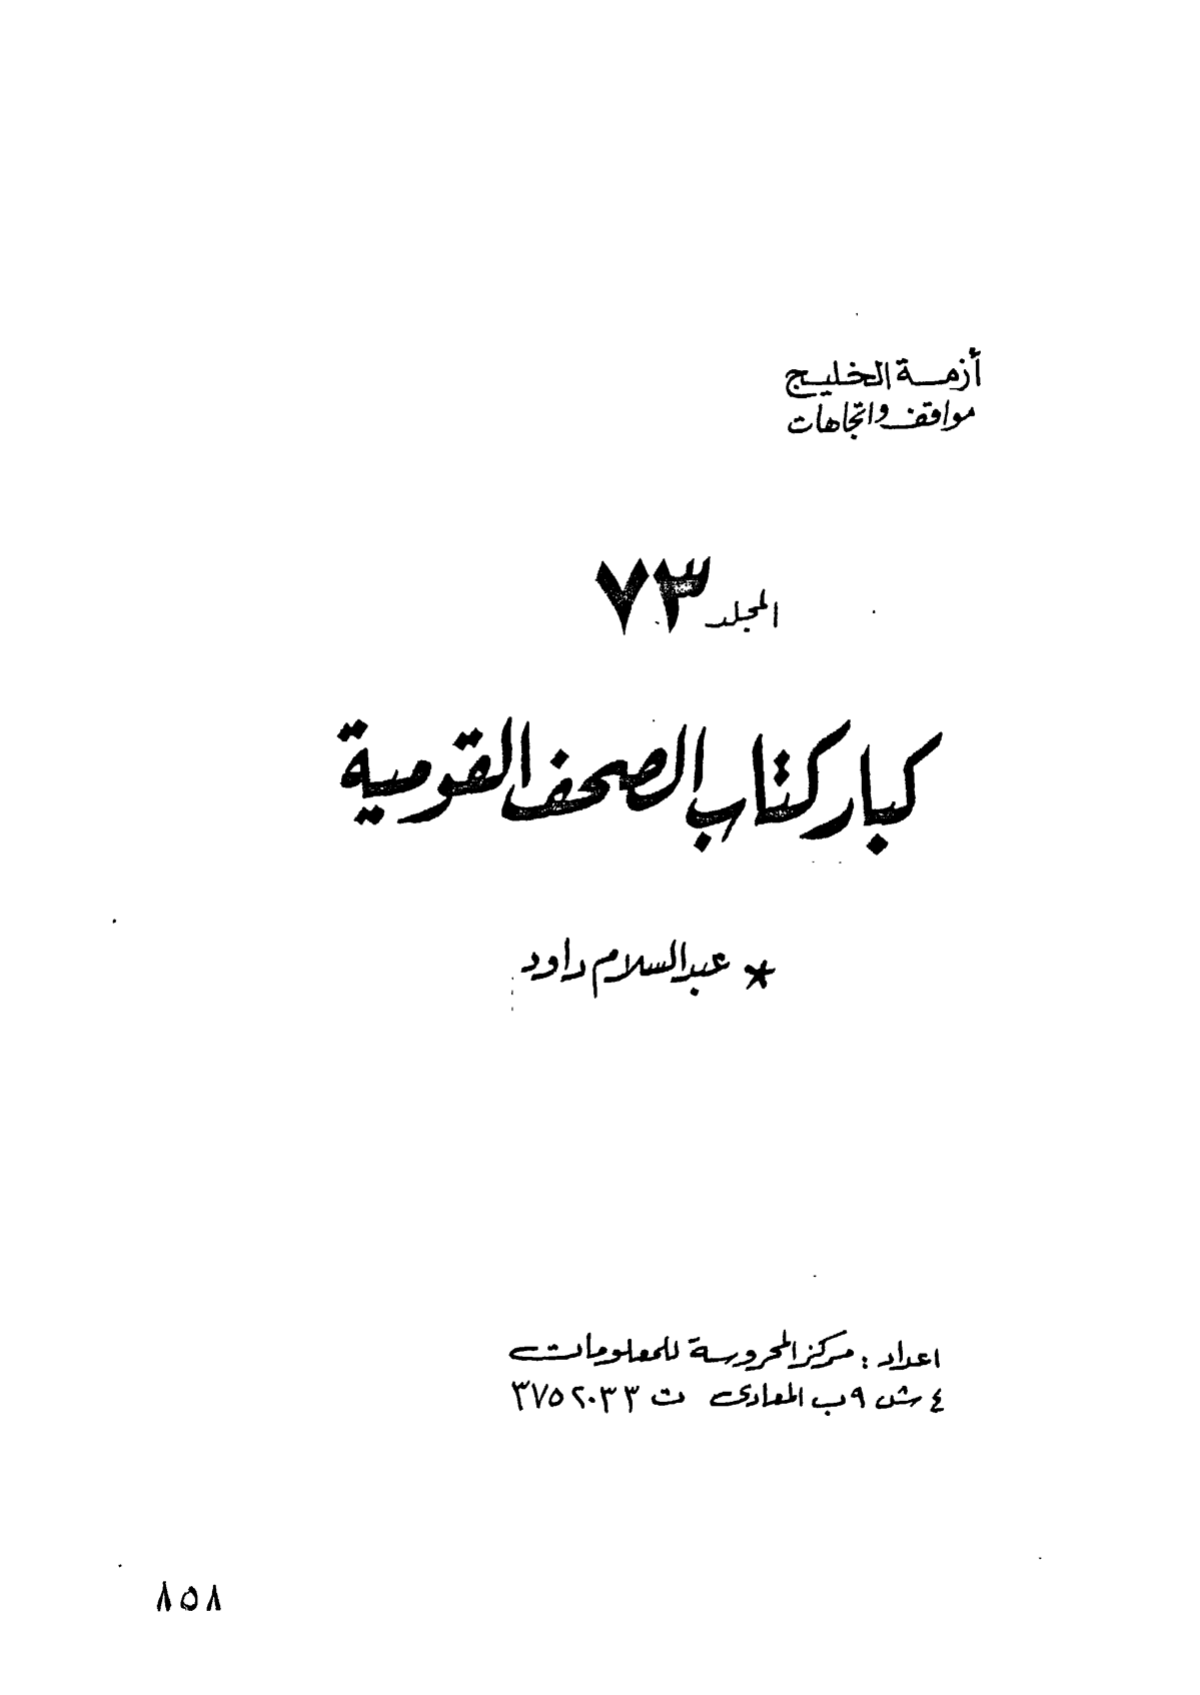 أزمة الخليج
مواقف واتجاهات
المجلد ٧٣
كبار كتاب الصحف القومية
* عبد السلام داود
اعداد : مركز المحروسة للمعلومات
٤ ش ٩ ب المعادى ت ٣٧٥٢٠٣٣
٨٥٨